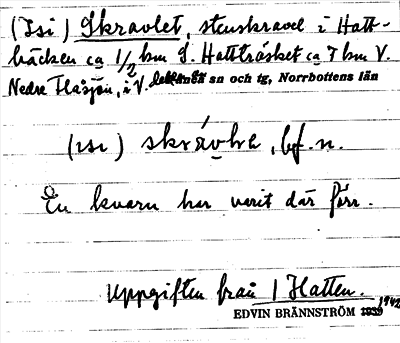 (Isi) Skravlet, stenskravel i Hatt-
bäcken ca 1/2 km S. Hattträsket ca 7 km V.
Nedre Flåsjön, i V. sn och tg, Norrbottens län
(isi) skrávle, bf. n.
En kvarn har varit där förr.
Uppgiften från 1 Hatten.
EDVIN BRÄNNSTRÖM 1942